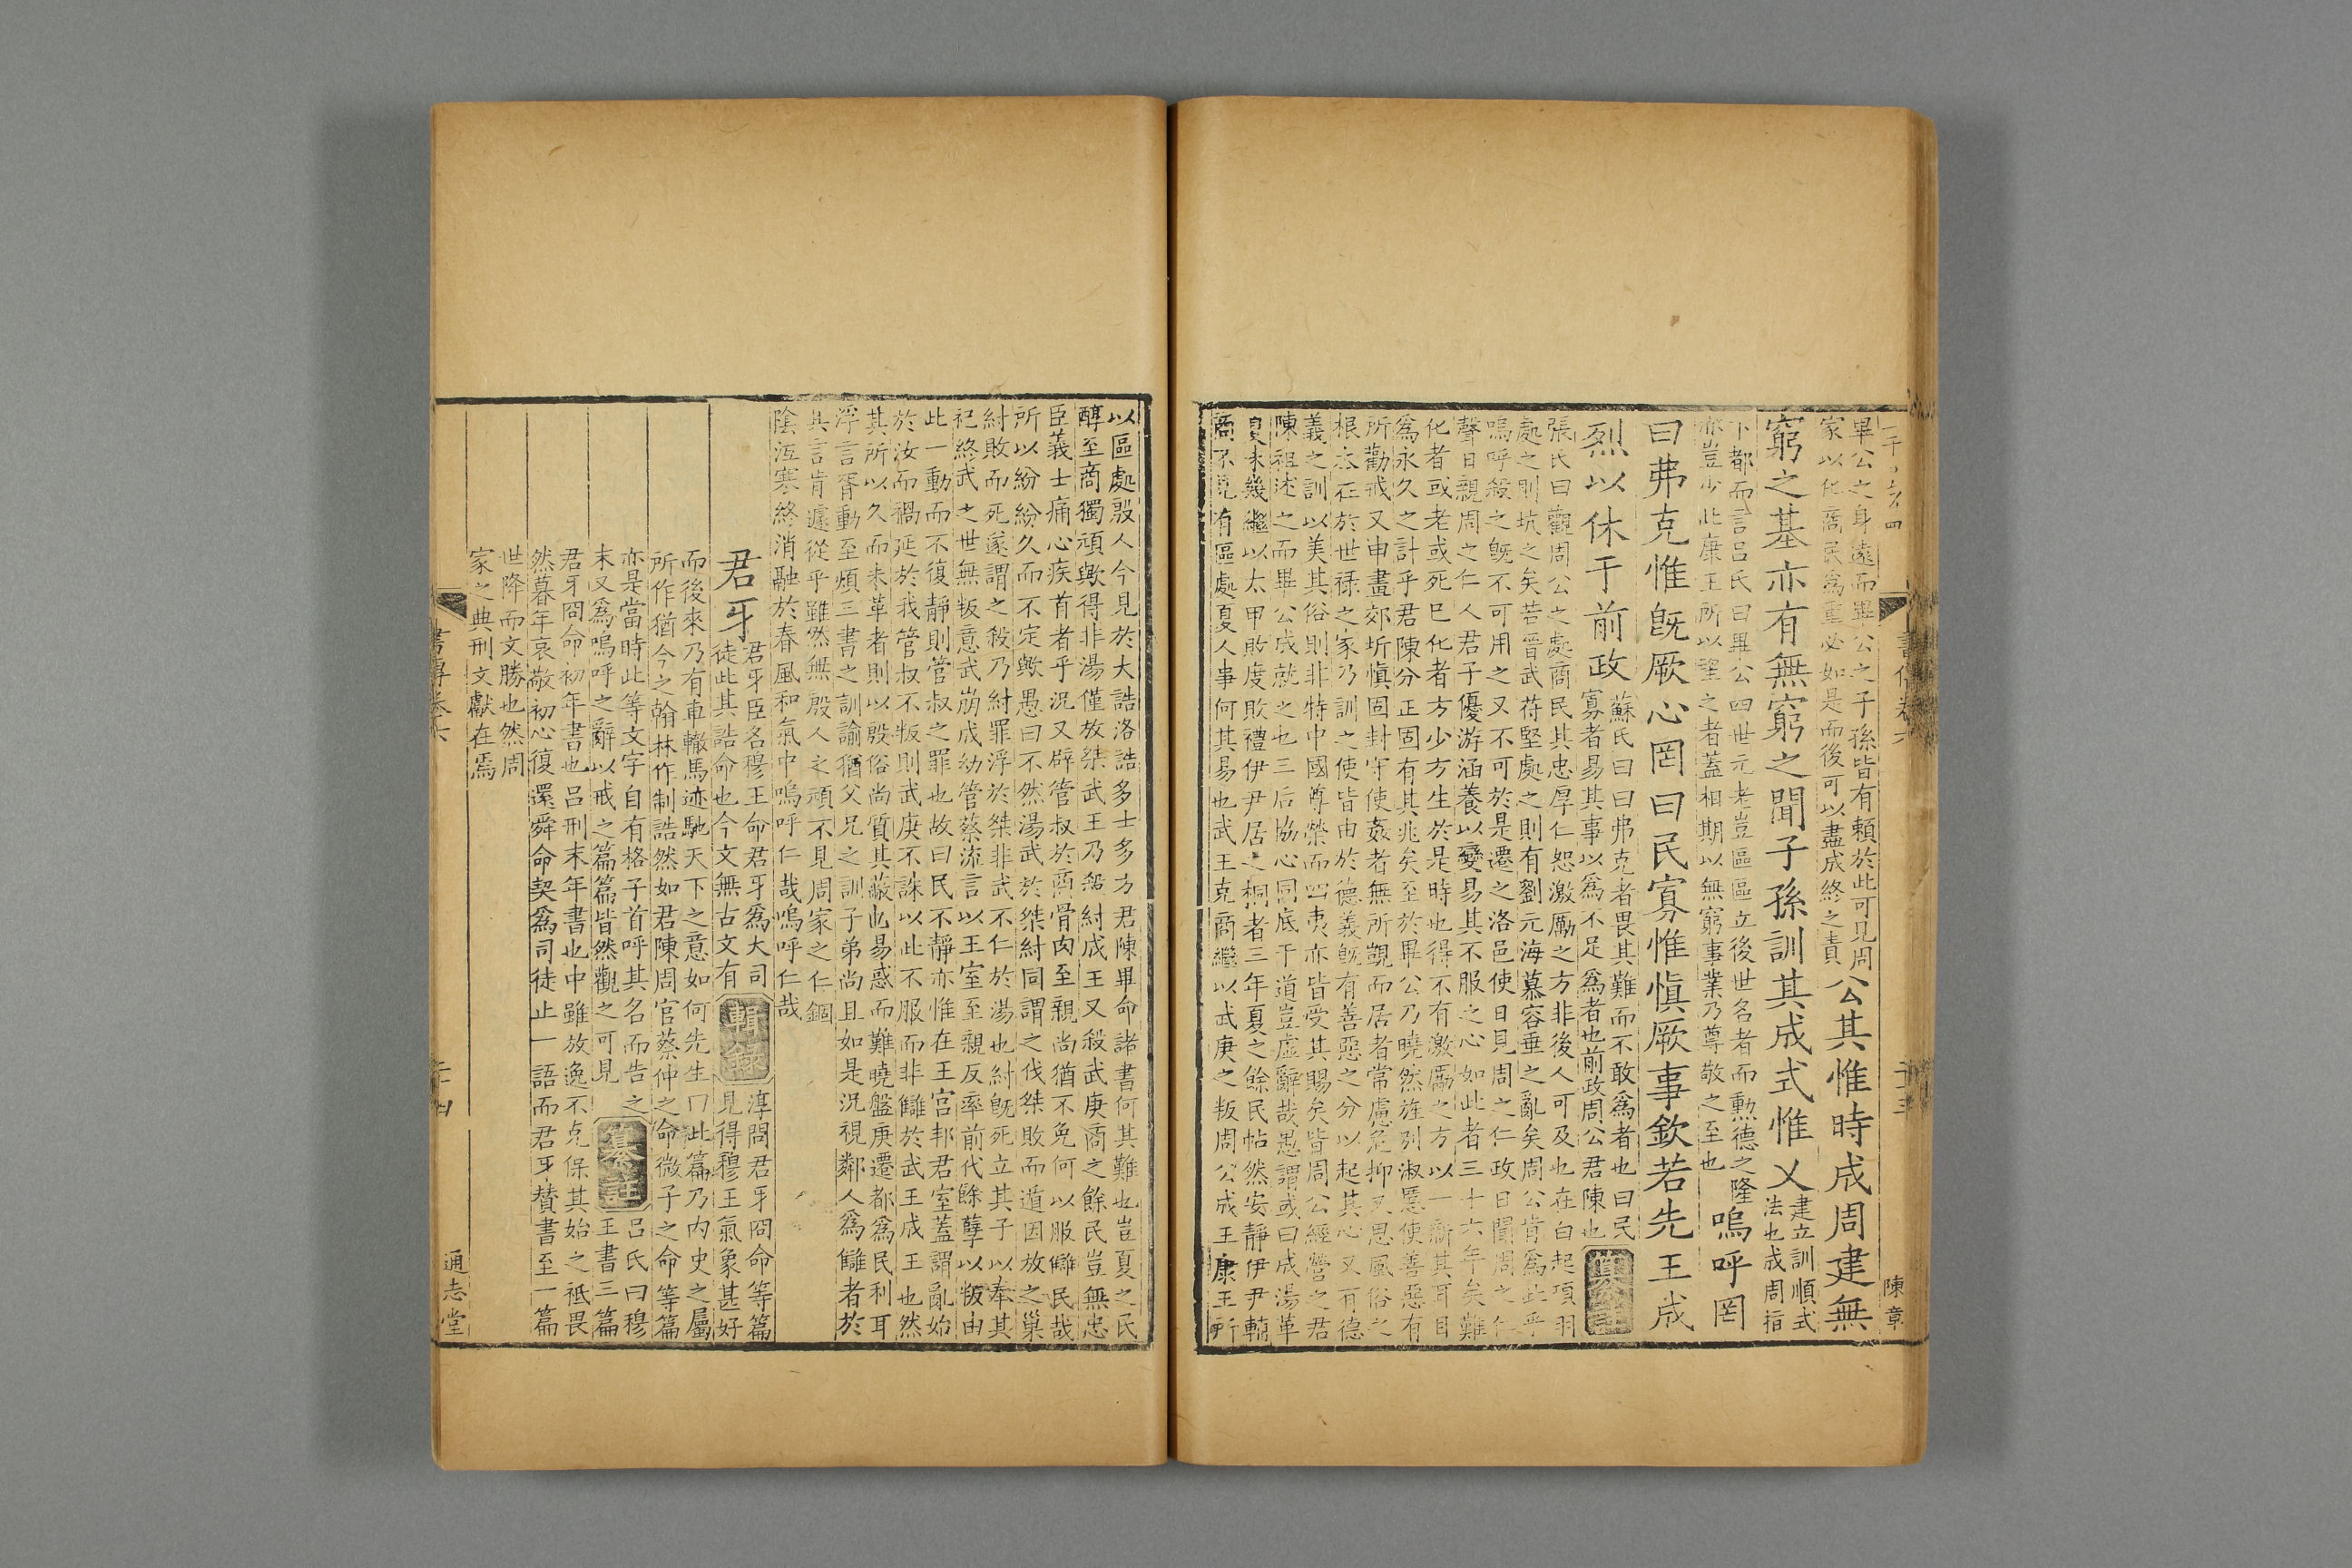 畢公之身遠而畢公之子孫皆有賴於此可見周
家以化商民爲重必如是而後可以盡成終之責
公其惟時成周建無
窮之基亦有無窮之聞子孫訓其成式惟乂
建立訓順式
法也成周指
下都而言呂氏曰畢公四世元老豈區區立後世名者而勲德之隆
亦豈少此康王所以望之者蓋相期以無窮事業乃尊敬之至也
嗚呼罔
曰弗克惟旣厥心罔曰民寡惟愼厥事欽若先王成
烈以休于前政
蘇氏曰曰弗克者畏其難而不敢爲者也曰民
寡者易其事以爲不足爲者也前政周公君陳也
纂註
張氏曰觀周公之處商民其忠厚仁恕激厲之方非後人可及也在白起項羽
處之則坑之矣苦晉武苻堅處之則有劉元海慕容垂之亂矣周公肯爲此乎
嗚呼殺之旣不可用之又不可於是遷之洛邑使日見周之仁政日聞周之仁
聲日親周之仁人君子優游涵養以變易其不服之心如此者三十六年矣難
化者或老或死巳化者方少方生於是時也得不有激厲之方以一新其耳目
爲永久之計乎君陳分正固有其兆矣至於畢公乃曉然旌別淑慝使善惡有
所勸戒又申畫郊圻愼固封守使姦者無所覬而居者常慮危抑又思風俗之
根本在於世祿之家乃訓之使皆由於德義旣有善惡之分以起其心又有德
義之訓以美其俗則非特中國尊榮而四夷亦皆受其賜矣皆周公經營之君
陳祖述之而畢公成就之也三后協心同底于道豈虛辭哉愚謂或曰成湯革
夏未幾繼以太甲敗度敗禮伊尹居之桐者三年夏之餘民帖然安靜伊尹輔
商不見有區處夏人事何其易也武王克商繼以武庚之叛周公成王康王所
陳章
以區處殷人今見於大誥洛誥多士多方君陳畢命諸書何其難也豈夏之民
醇至商獨頑歟得非湯僅放桀武王乃殺紂成王又殺武庚商之餘民豈無忠
臣義士痛心疾首者乎況又辟管叔於商骨肉至親尚猶不免何以服讎民哉
所以紛紛久而不定歟愚曰不然湯武於桀紂同謂之伐桀敗而遁因放之巢
紂敗而死遂謂之殺乃紂罪浮於桀非武不仁於湯也紂旣死立其子以奉其
祀終武之世無叛意武崩成幼管蔡流言以王室至親反率前代餘孽以叛由
此一動而不復靜則管叔之罪也故曰民不靜亦惟在王宮邦君室蓋謂亂始
於汝而禍延於我管叔不叛則武庚不誅以此不服而非讎於武王成王也然
其所以久而未革者則以殷俗尚質其蔽也易惑而難曉盤庚遷都爲民利耳
浮言胥動至煩三書之訓諭猶父兄之訓子弟尚且如是況視鄰人爲讎者於
其言肯遽從乎雖然無殷人之頑不見周家之仁錮
陰沍寒終消融於春風和氣中嗚呼仁哉嗚呼仁哉
君牙
君牙臣名穆王命君牙爲大司
徒此其誥命也今文無古文有
輯錄
淳問君牙冏命等篇
見得穆王氣象甚好
而後來乃有車轍馬迹馳天下之意如何先生曰此篇乃內史之屬
所作猶今之翰林作制誥然如君陳周官蔡仲之命微子之命等篇
亦是當時此等文字自有格子首呼其名而告之
末又爲嗚呼之辭以戒之篇篇皆然觀之可見
纂註
呂氏曰穆
王書三篇
君牙冏命初年書也呂刑末年書也中雖放逸不克保其始之祗畏
然暮年哀敬初心復還舜命契爲司徒止一語而君牙贊書至一篇
世降而文勝也然周
家之典刑文獻在焉
通志堂